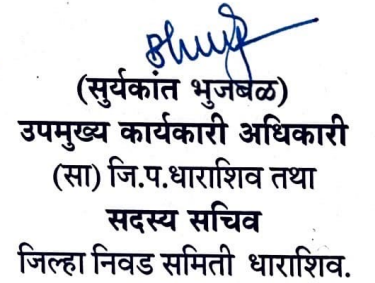 (सुर्यकांत भुजबळ)
उपमुख्य कार्यकारी अधिकारी
(सा) जि.प.धाराशिव तथा
सदस्य सचिव
जिल्हा निवड समिती धाराशिव.